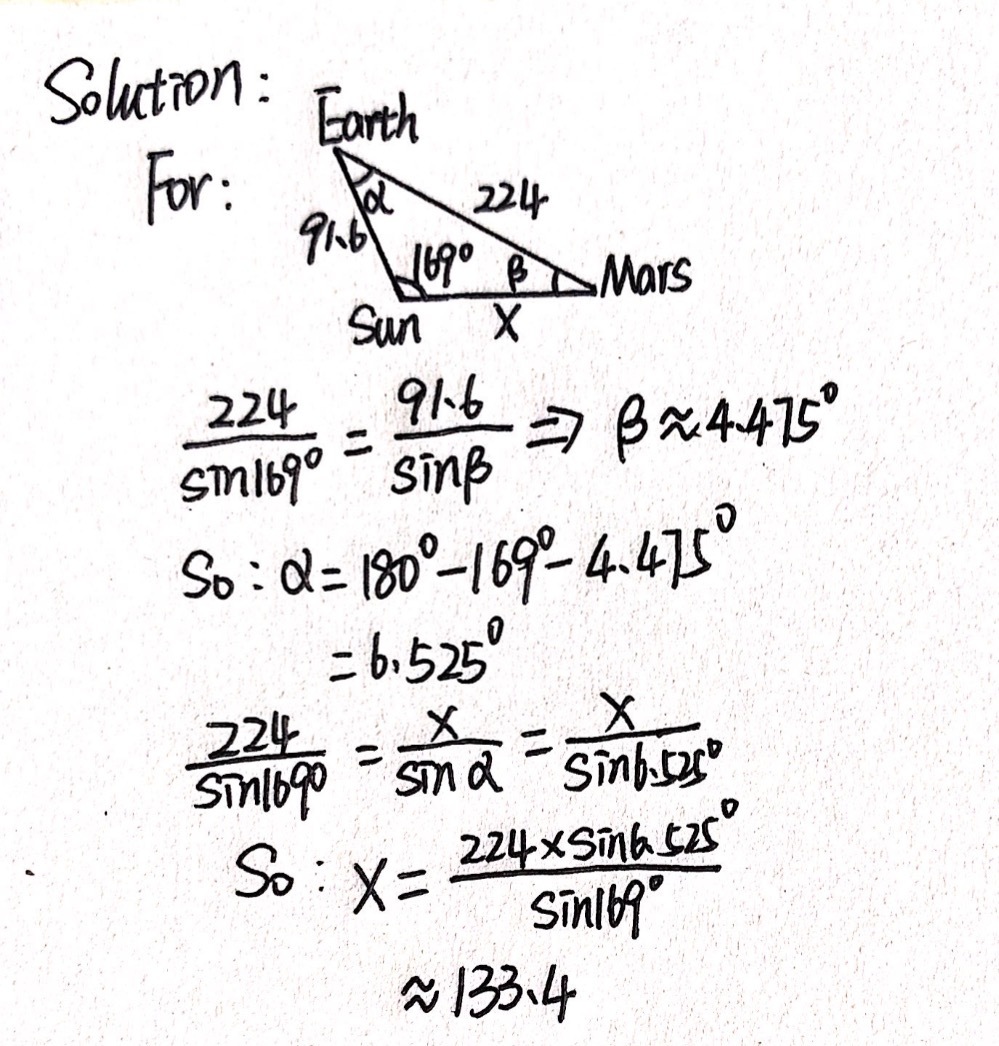 Solution:
Earth
For:
α
224
91.6
169°
β
Mars
Sun
X
224/sin169° = 91.6/sinβ ⇒ β≈4.475°
So: α=180°-169°-4.475°
=6.525°
224/sin169° = X/sin α = X/sin6.525°
So: X= 224×sin6.525°/sin169°
≈133.4